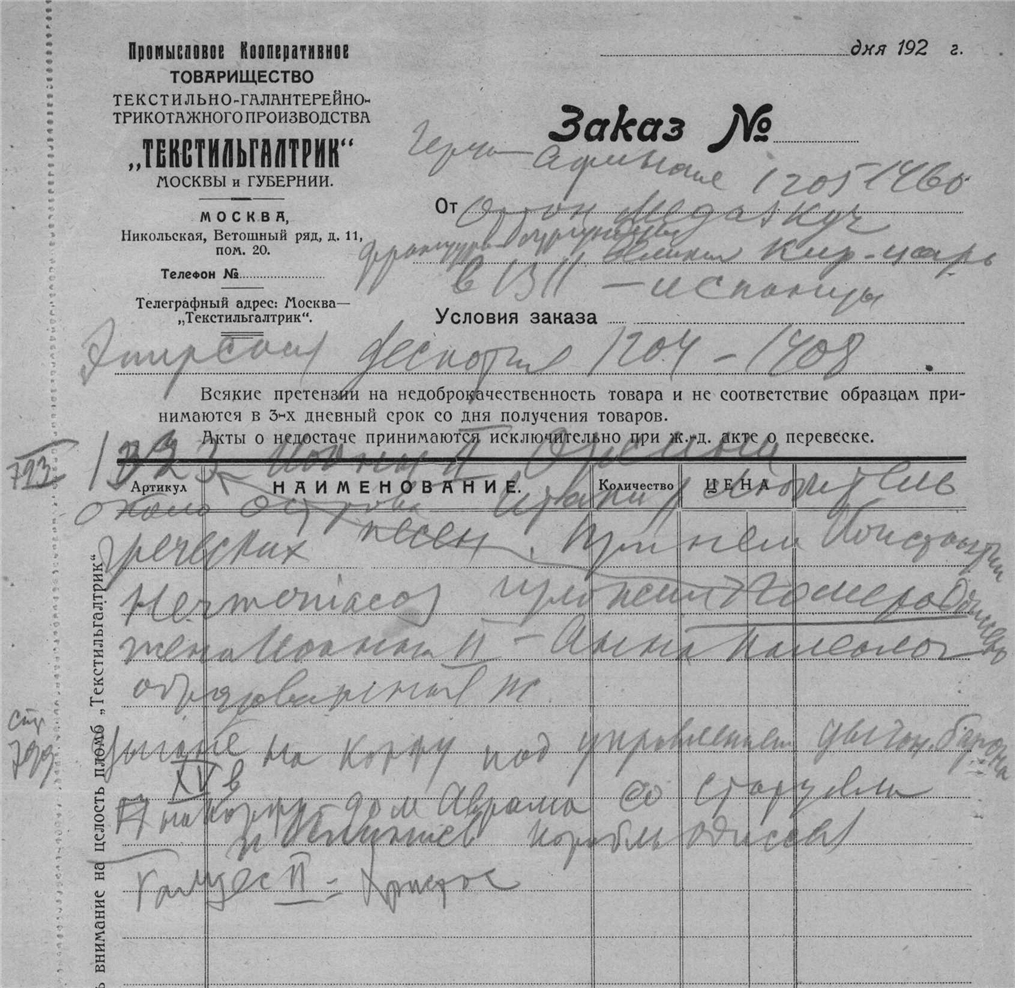 Промысловое Кооперативное
ТОВАРИЩЕСТВО
ТЕКСТИЛЬНО-ГАЛАНТЕРЕЙНО-
ТРИКОТАЖНОГО ПРОИЗВОДСТВА
„ТЕКСТИЛЬГАЛТРИК“
МОСКВЫ и ГУБЕРНИИ.
МОСКВА,
Никольская, Ветошный ряд, д. 11,
пом. 20.
Телефон №
Телеграфный адрес: Москва—
„Текстильгалтрик“.
дня 192 г.
Заказ №
1205 1460
От Оттон
Кир-царь
в 1311 — испанцы
Условия заказа
Эпирская деспотия 1204 – 1408.
Всякие претензии на недоброкачественность товара и не соответствие образцам при-
нимаются в 3-х дневный срок со дня получения товаров.
Акты о недостаче принимаются исключительно при ж.-д. акте о перевеске.
793 1323 Иоанн II Орсини
Артикул НАИМЕНОВАНИЕ. Количество ЦЕНА
около острова Итаки
греческих песен. При нем Константин
изложил Гомера
жена Иоанна II — Анна Палеолог
образованная ж.
стр 799
Цыгане на Корфу под управлением цыган. барона
XV в
на Корфу дом Авраама со статуями
и корабль Одиссея
II – Христос
ь внимание на целость пломб „Текстильгалтрик“